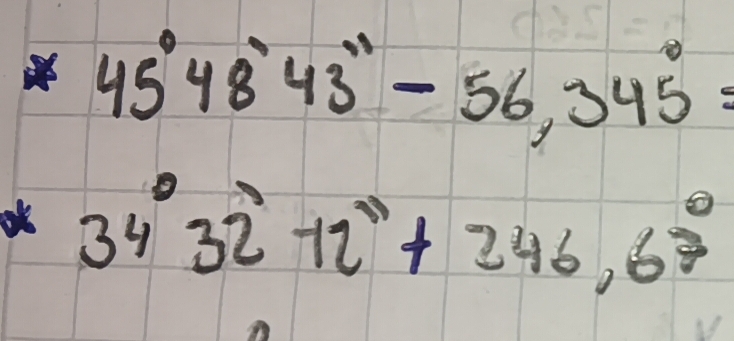 * 45° 48' 43" - 56,345° =
* 34° 32' 12" + 246,67°